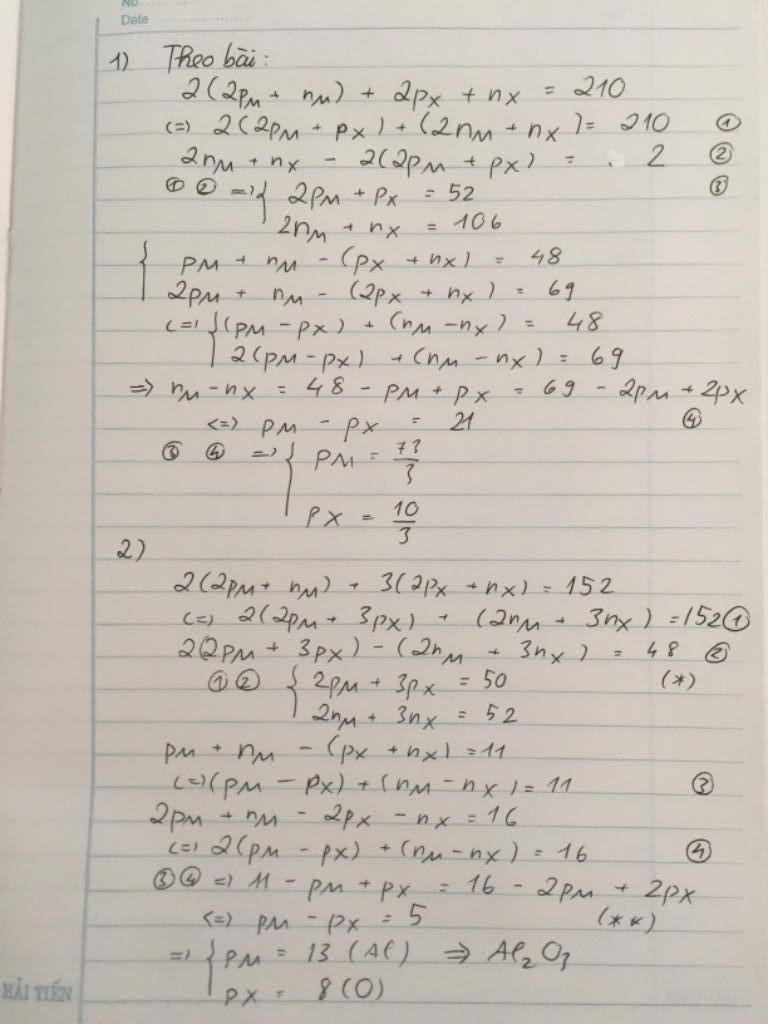 No.
Date
1) Theo bài:
2(2pM + nM) + 2pX + nX = 210
(=) 2(2pM + pX) + (2nM + nX) = 210 ①
2nM + nX - 2(2pM + pX) = 2 ②
① ② =) { 2pM + pX = 52 ③
2nM + nX = 106
{ pM + nM - (pX + nX) = 48
2pM + nM - (2pX + nX) = 69
(=) { (pM - pX) + (nM - nX) = 48
2(pM - pX) + (nM - nX) = 69
=> nM - nX = 48 - pM + pX = 69 - 2pM + 2pX
<=> pM - pX = 21 ④
③ ④ =) { pM = 73/3
pX = 10/3
2)
2(2pM + nM) + 3(2pX + nX) = 152
(=) 2(2pM + 3pX) + (2nM + 3nX) = 152 ①
2(2pM + 3pX) - (2nM + 3nX) = 48 ②
① ② { 2pM + 3pX = 50 (*)
2nM + 3nX = 52
pM + nM - (pX + nX) = 11
(=) (pM - pX) + (nM - nX) = 11 ③
2pM + nM - 2pX - nX = 16
(=) 2(pM - pX) + (nM - nX) = 16 ④
③ ④ =) 11 - pM + pX = 16 - 2pM + 2pX
<=> pM - pX = 5 (**)
=) { pM = 13 (Al) => Al₂O₃
pX = 8 (O)
HẢI TIẾN